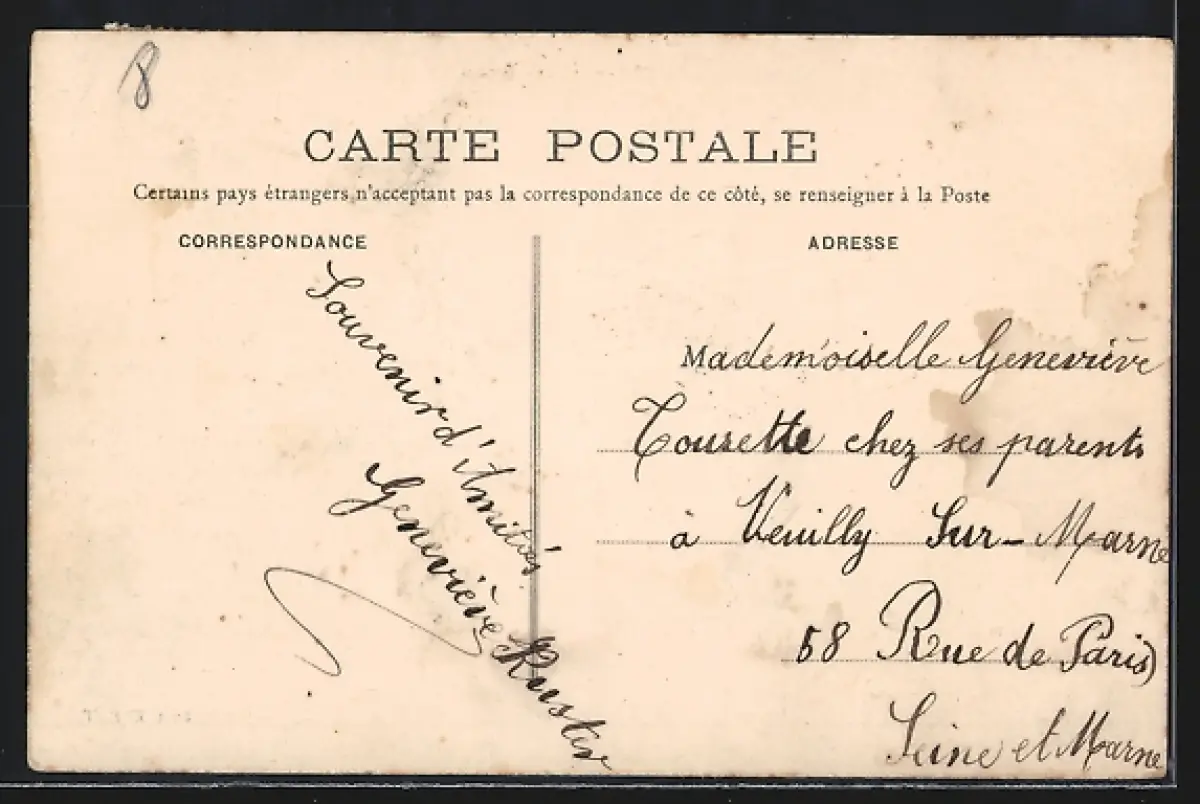 8
CARTE POSTALE
Certains pays étrangers n'acceptant pas la correspondance de ce côté, se renseigner à la Poste
CORRESPONDANCE
Souvenir d'Amitiés
Geneviève
ADRESSE
Mademoiselle Geneviève
Tousette chez ses parents
à Veuilly Sur-Marne
58 Rue de Paris
Seine et Marne